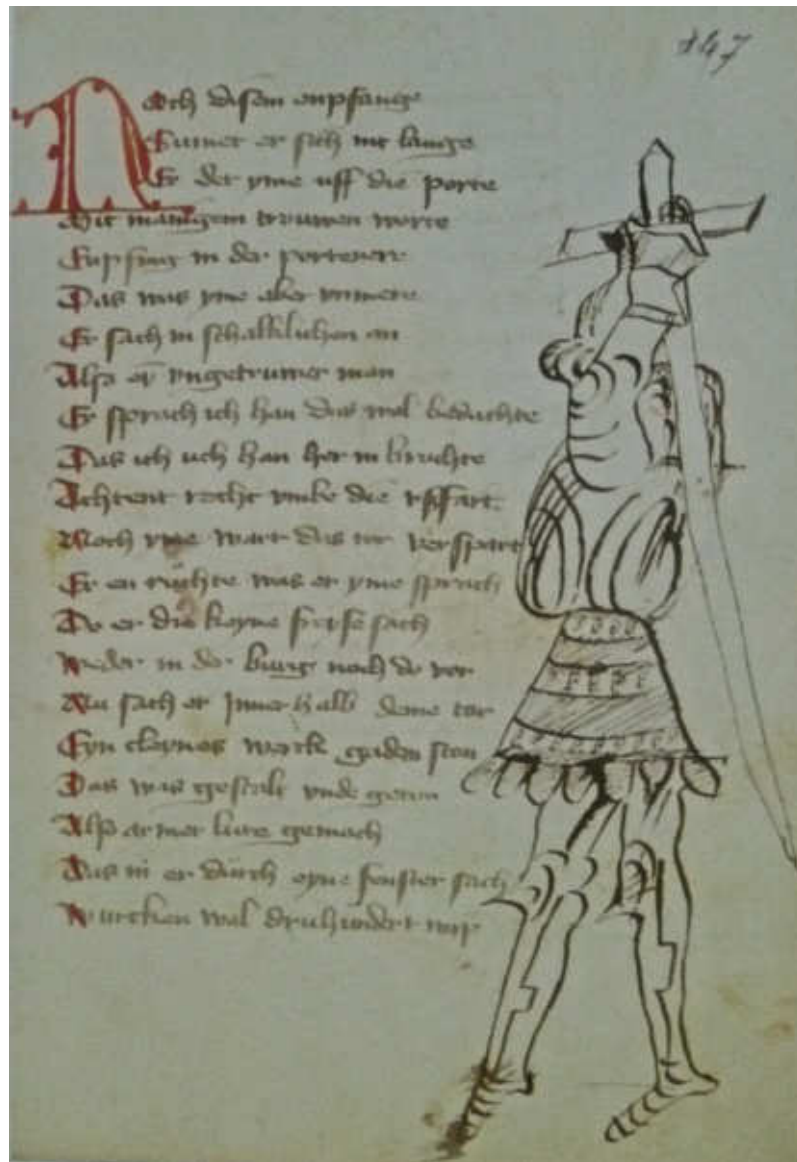 147
Noch disem enpfange
Sumet er sich nit lange
Er det yme uff die porte
Mit manigem trouwen worte
Enpfing in der portenere
Das was yme aber vnmere
Er sach in schalklichen an
Alsß eyn vngetruwer man
Er sprach ich han das wal bedachte
Das ich uch han her in brachte
Achtent recht vmbe die vßfart
Noch yme wart das tor verspart
Er en ruchte was er yme sprach
Do er die keyne freyse sach
Weder in der burg noch do vor
Nu sach er Jnnerhalb deme tor
Eyn cleynes werk gaden ston
Das was gestalt vnde geton
Alsß armer lute gemach
Das in er durch eyne fenster sach
Wurcken wal druhundert wip